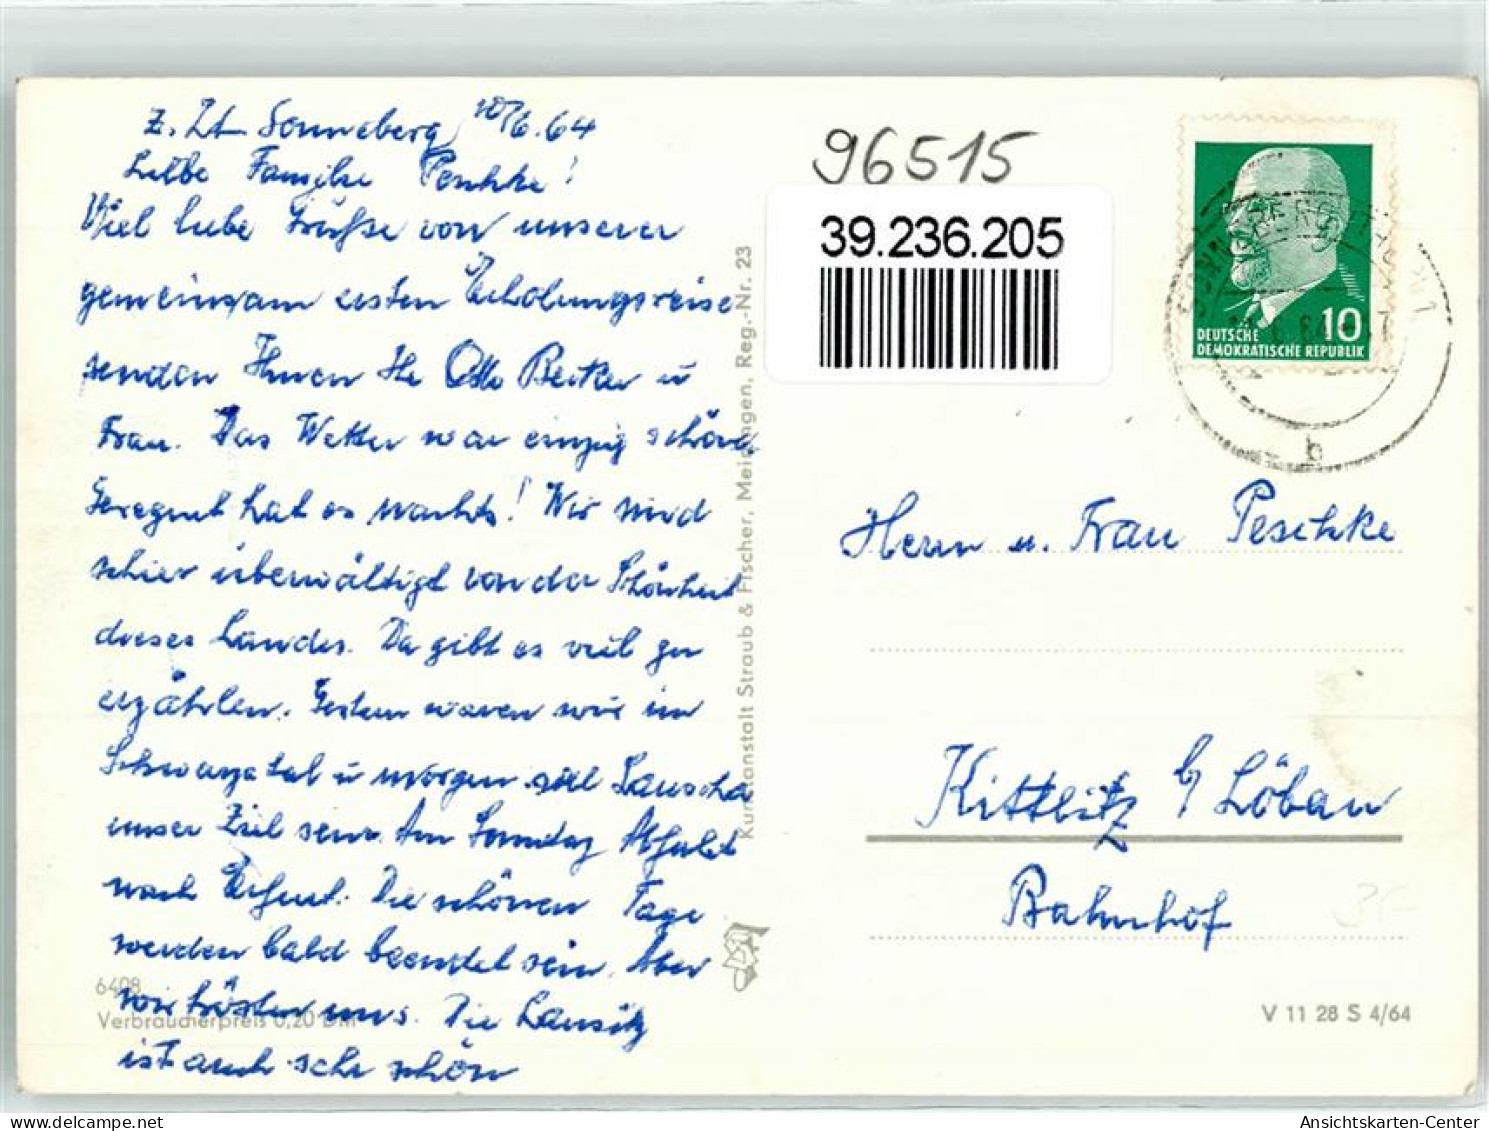 z. Zt. Sonneberg, 10/6.64
Liebe Familie Peschke!
Viel liebe Grüße von unserer
gemeinsam ersten Erholungsreise
senden Ihnen Ihr Otto Becker u
Frau. Das Wetter war einzig schön,
Geregnet hat es nachts! Wir sind
schier überwältigt von der Schönheit
dieses Landes. Da gibt es viel zu
erzählen. Gestern waren wir im
Schwarzatal u morgen soll Lauscha
unser Ziel sein. Am Sonntag Abfahrt
nach Erfurt. Die schönen Tage
werden bald beendet sein. Aber
wir trösten uns. Die Lausitz
ist auch sehr schön
6408
Verbraucherpreis 0,20 DM
Kunstanstalt Straub & Fischer, Meiningen, Reg.-Nr. 23
96515
39.236.205
DEUTSCHE 10
DEMOKRATISCHE REPUBLIK
b
Herrn u. Frau Peschke
Kittlitz b/ Löbau
Bahnhof
V 11 28 S 4/64
delcampe.net
Ansichtskarten-Center